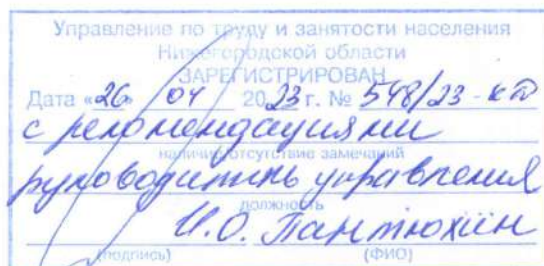 Управление по труду и занятости населения
Нижегородской области
ЗАРЕГИСТРИРОВАН
Дата «26» 04 2023 г. № 548/23 - КД
с рекомендациями
наличие/отсутствие замечаний
руководитель управления
должность
И.О. Пантюхин
(подпись) (ФИО)